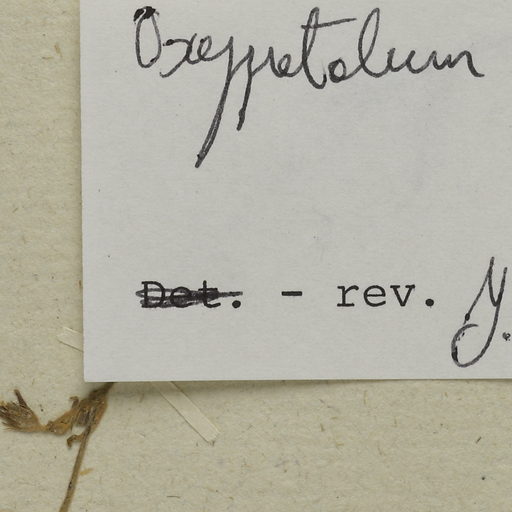 Oxypetalum
Det. - rev. Y.